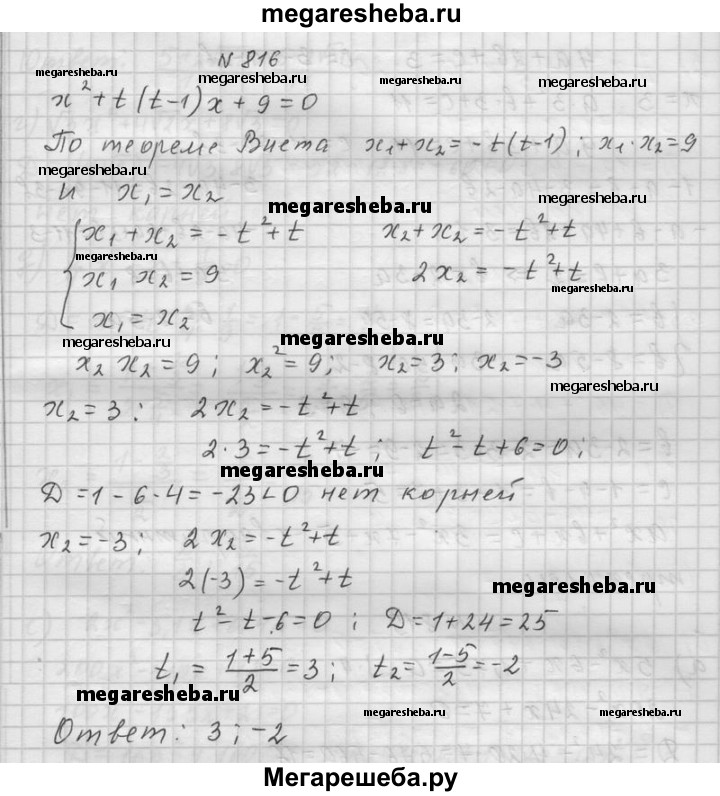 megaresheba.ru
N 816
megaresheba.ru megaresheba.ru megaresheba.ru megaresheba.ru
x² + t(t-1)x + 9 = 0
По теореме Виета x₁+x₂ = -t(t-1); x₁·x₂=9
megaresheba.ru megaresheba.ru
и x₁ = x₂
megaresheba.ru
x₁ + x₂ = -t²+t x₂+x₂ = -t²+t
megaresheba.ru
x₁ x₂ = 9 2x₂ = -t²+t
megaresheba.ru
x₁ = x₂
megaresheba.ru megaresheba.ru
x₂ x₂ = 9; x₂² = 9; x₂=3; x₂=-3
megaresheba.ru
x₂ = 3: 2x₂ = -t²+t
2·3 = -t²+t; t²-t+6=0;
megaresheba.ru
D = 1-6·4 = -23<0 нет корней
x₂ = -3; 2x₂ = -t²+t
2(-3) = -t²+t
megaresheba.ru
t²-t-6=0; D=1+24=25
t₁ = (1+5)/2 = 3; t₂ = (1-5)/2 = -2
megaresheba.ru
megaresheba.ru megaresheba.ru
Ответ: 3; -2
Мегарешеба.ру